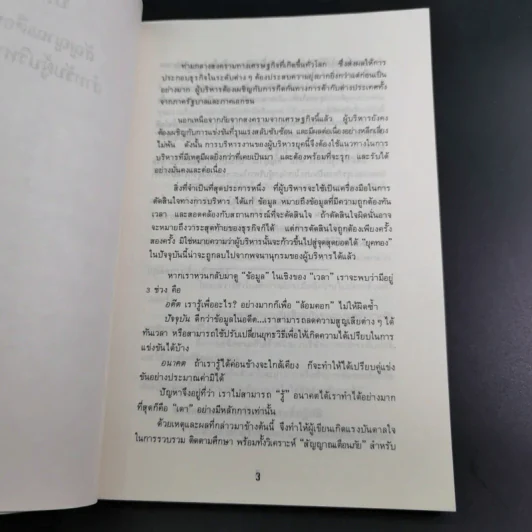 ท่ามกลางสงครามทางเศรษฐกิจที่เกิดขึ้นทั่วโลก ซึ่งส่งผลให้การ
ประกอบธุรกิจในระดับต่าง ๆ ต้องประสบความยุ่งยากยิ่งกว่าแต่ก่อนเป็น
อย่างมาก ผู้บริหารต้องเผชิญกับการกีดกันทางการค้ากับต่างประเทศทั้ง
จากภาครัฐบาลและภาคเอกชน
นอกเหนือจากภัยจากสงครามจากเศรษฐกิจนี้แล้ว ผู้บริหารยังคง
ต้องเผชิญกับการแข่งขันที่รุนแรงสลับซับซ้อน และมีผลต่อเนื่องอย่างหลีกเลี่ยง
ไม่พ้น ดังนั้น การบริหารงานของผู้บริหารยุคนี้จึงต้องใช้แนวทางในการ
บริหารที่มีเหตุมีผลยิ่งกว่าที่เคยเป็นมา และต้องพร้อมที่จะรุก และรับได้
อย่างมั่นคงและต่อเนื่อง
สิ่งที่จำเป็นที่สุดประการหนึ่ง ที่ผู้บริหารจะใช้เป็นเครื่องมือในการ
ตัดสินใจทางการบริหาร ได้แก่ ข้อมูล หมายถึงข้อมูลที่มีความถูกต้องทัน
เวลา และสอดคล้องกับสถานการณ์ที่จะตัดสินใจ ถ้าตัดสินใจผิดนั่นอาจ
จะหมายถึงวาระสุดท้ายของธุรกิจก็ได้ แต่การตัดสินใจถูกต้องเพียงครั้ง
สองครั้ง มิใช่หมายความว่าผู้บริหารนั้นจะก้าวขึ้นไปสู่จุดสุดยอดได้ "ยุคทอง"
ในปัจจุบันนี้น่าจะถูกลบไปจากพจนานุกรมของผู้บริหารได้แล้ว
หากเราหวนกลับมาดู "ข้อมูล" ในเชิงของ "เวลา" เราจะพบว่ามีอยู่
3 ช่วง คือ
อดีต เรารู้เพื่ออะไร? อย่างมากก็เพื่อ "ล้อมคอก" ไม่ให้ผิดซ้ำ
ปัจจุบัน ดีกว่าข้อมูลในอดีต...เราสามารถลดความสูญเสียต่าง ๆ ได้
ทันเวลา หรือสามารถใช้ปรับเปลี่ยนยุทธวิธีเพื่อให้เกิดความได้เปรียบในการ
แข่งขันได้บ้าง
อนาคต ถ้าเรารู้ได้ค่อนข้างจะใกล้เคียง ก็จะทำให้ได้เปรียบคู่แข่ง
ขันอย่างประมาณค่ามิได้
ปัญหาจึงอยู่ที่ว่า เราไม่สามารถ "รู้" อนาคตได้เราทำได้อย่างมาก
ที่สุดก็คือ "เดา" อย่างมีหลักการเท่านั้น
ด้วยเหตุและผลที่กล่าวมาข้างต้นนี้ จึงทำให้ผู้เขียนเกิดแรงบันดาลใจ
ในการรวบรวม ติดตามศึกษา พร้อมทั้งวิเคราะห์ "สัญญาณเตือนภัย" สำหรับ
3